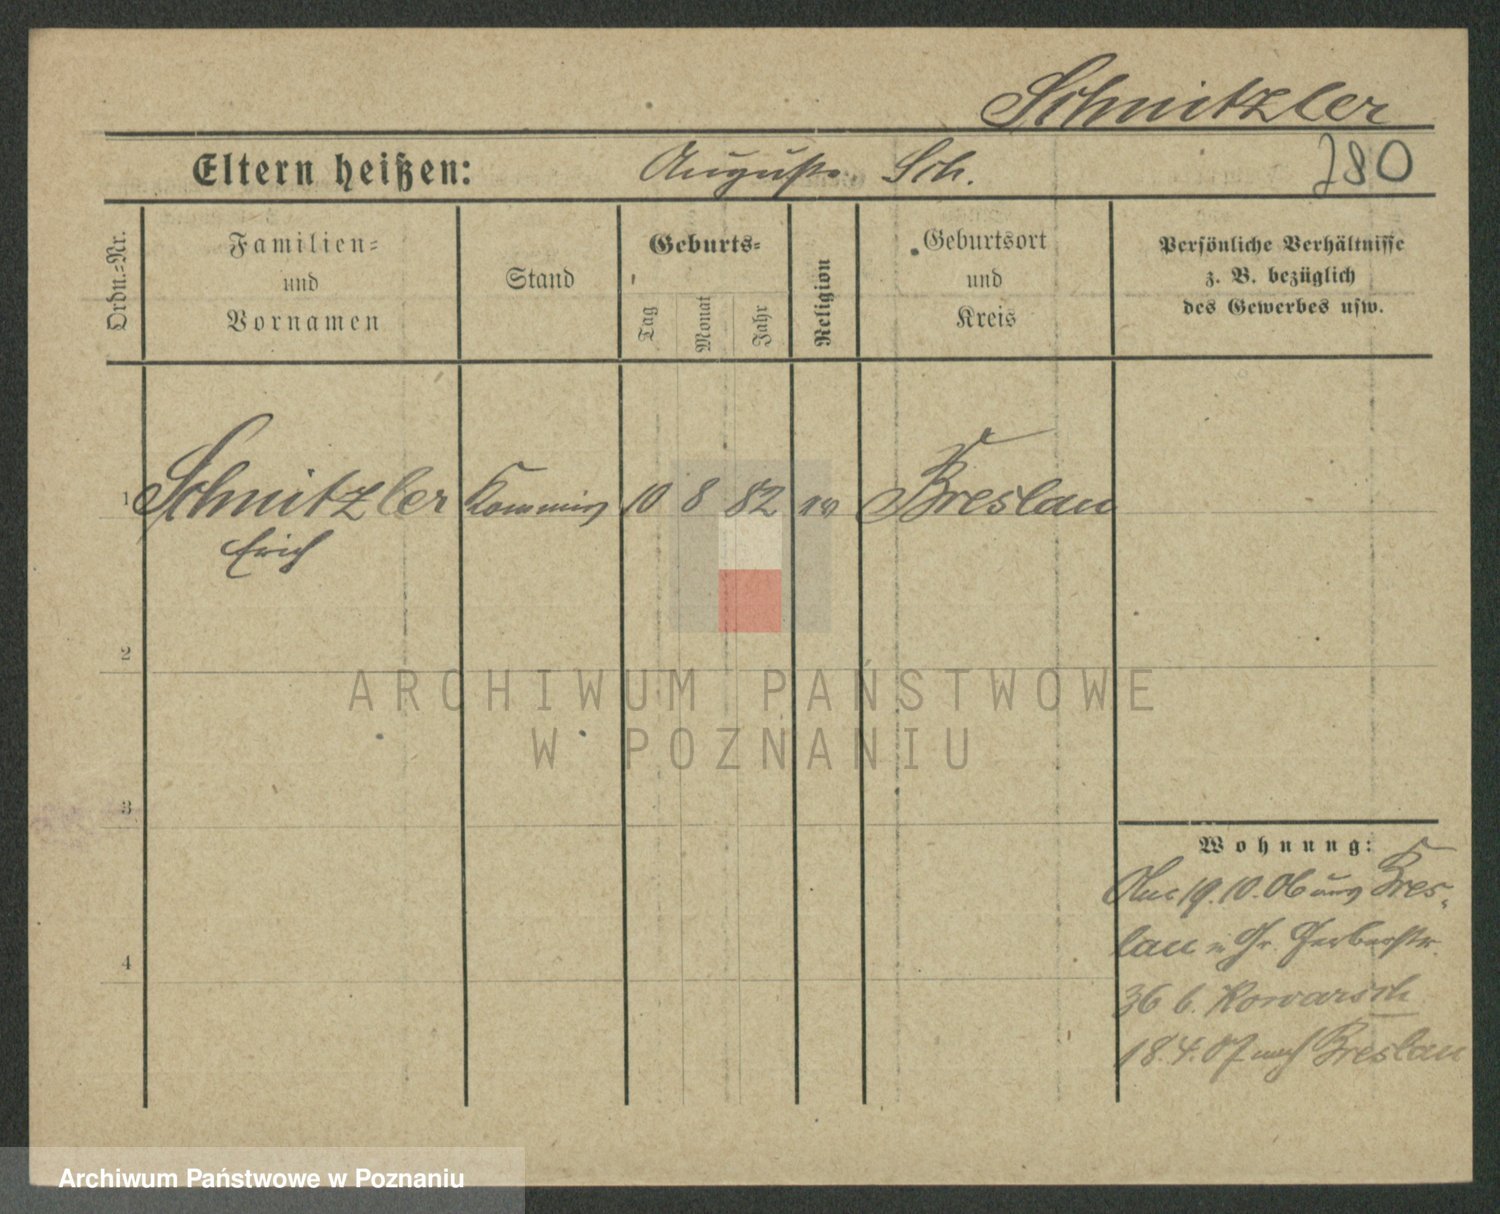 Schnitzler
Eltern heißen: August Sch. 780
Ordn.=Nr.
Familien=
und
Vornamen
Stand
Geburts=
Tag
Monat
Jahr
Religion
Geburtsort
und
Kreis
Persönliche Verhältnisse
z. B. bezüglich
des Gewerbes usw.
1 Schnitzler Kommis 10 8 82 ev Breslau
Erich
2
ARCHIWUM PAŃSTWOWE
W POZNANIU
3
Wohnung:
19.10.06 aus Bres-
lau n Gr. Gerberstr.
4
36 b. Kowarsch
18.4.07 nach Breslau
Archiwum Państwowe w Poznaniu